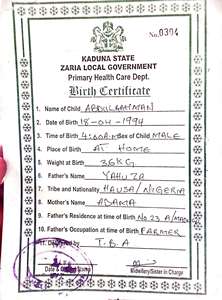 No. 0304
KADUNA STATE
ZARIA LOCAL GOVERNMENT
Primary Health Care Dept.
Birth Certificate
1. Name of Child ABDULRAHMAN
2. Date of Birth 18-04-1994
3. Time of Birth 4:00 A.M Sex of Child MALE
4. Place of Birth AT HOME
5. Weight at Birth 36KG
6. Father's Name YAHUZA
7. Tribe and Nationality HAUSA/NIGERIA
8. Mother's Name ADAMA
9. Father's Residence at time of Birth No 23 A/
10. Father's Occupation at time of Birth FARMER
11. Delivered by T.B.A
Date & Midwifery/Sister in Charge